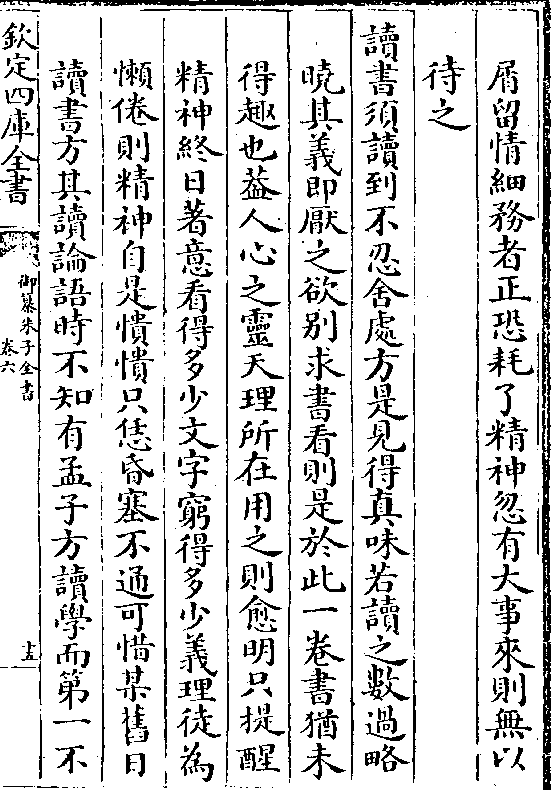 屑留情細務者正恐耗了精神忽有大事來則無以
待之
讀書須讀到不忍舍處方是見得真味若讀之數過略
曉其義即厭之欲别求書看則是於此一卷書猶未
得趣也葢人心之靈天理所在用之則愈明只提醒
精神終日著意看得多少文字窮得多少義理徒為
懶倦則精神自是憒憒只恁昏塞不通可惜某舊日
讀書方其讀論語時不知有孟子方讀學而第一不
欽定四庫全書
御纂朱子全書
卷六
十五